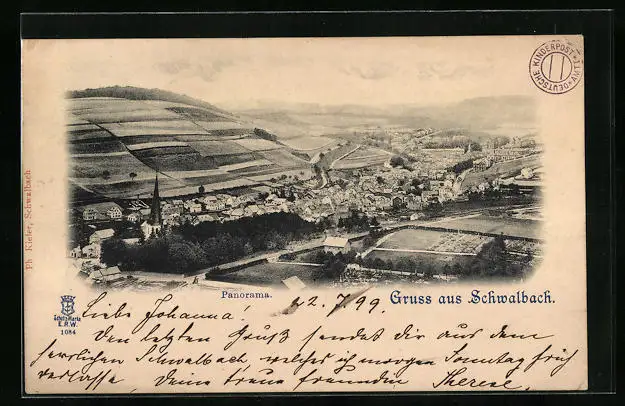 DEUTSCHE KINDERPOST * AMT 1 *
Ph. Kiefer, Schwalbach
Panorama.
Gruss aus Schwalbach.
Schutz-Marke
E.R.W.
1084
22.7.99
Liebe Johanna!
Den letzten Gruß sendet Dir aus dem
herrlichen Schwalbach, welches ich morgen Sonntag früh
verlasse, Deine treue Freundin Therese.